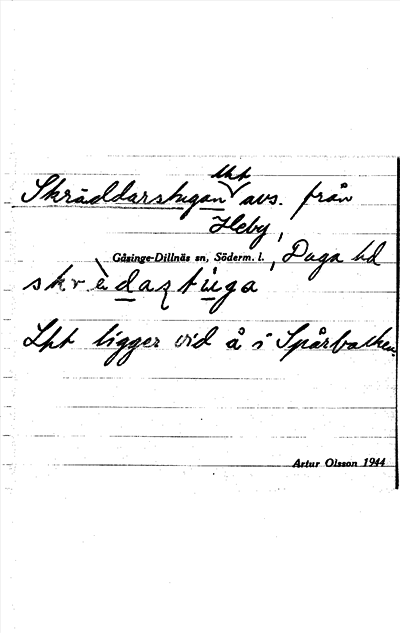 lht
Skräddarstugan avs. från
Heby,
Gåsinge-Dillnäs sn, Söderm. l., Daga hd
skrè̱daʂtu̇ga
Lht ligger vid å i Spårbacken.
Artur Olsson 1944